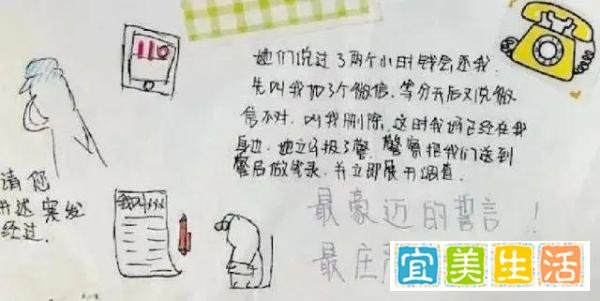 110
她们说过了两个小时钱会还我.
先叫我加了个微信.等分天后又说微
信不对.叫我删除.这时我妈已经在我
身边.她立马报了警.警察把我们送到
警局做笔录.并立即展开调查.
请您
讲述案发
经过.
我叫xxx
最豪迈的誓言!
最庄
宜美生活